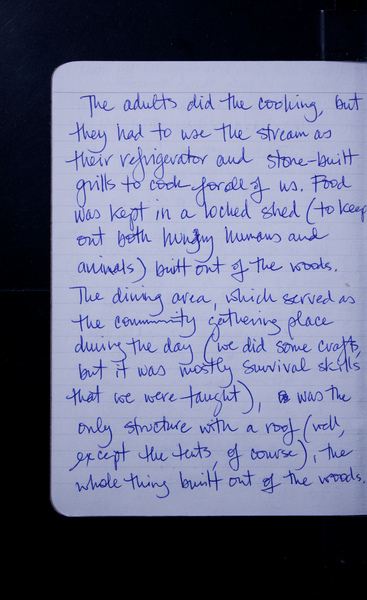 The adults did the cooking, but
they had to use the stream as
their refrigerator and stone-built
grills to cook for all of us. Food
was kept in a locked shed (to keep
out both hungry humans and
animals) built out of the woods.
The dining area, which served as
the community gathering place
during the day (we did some crafts,
but it was mostly survival skills
that we were taught), was the
only structure with a roof (well,
except the tents, of course), the
whole thing built out of the woods.